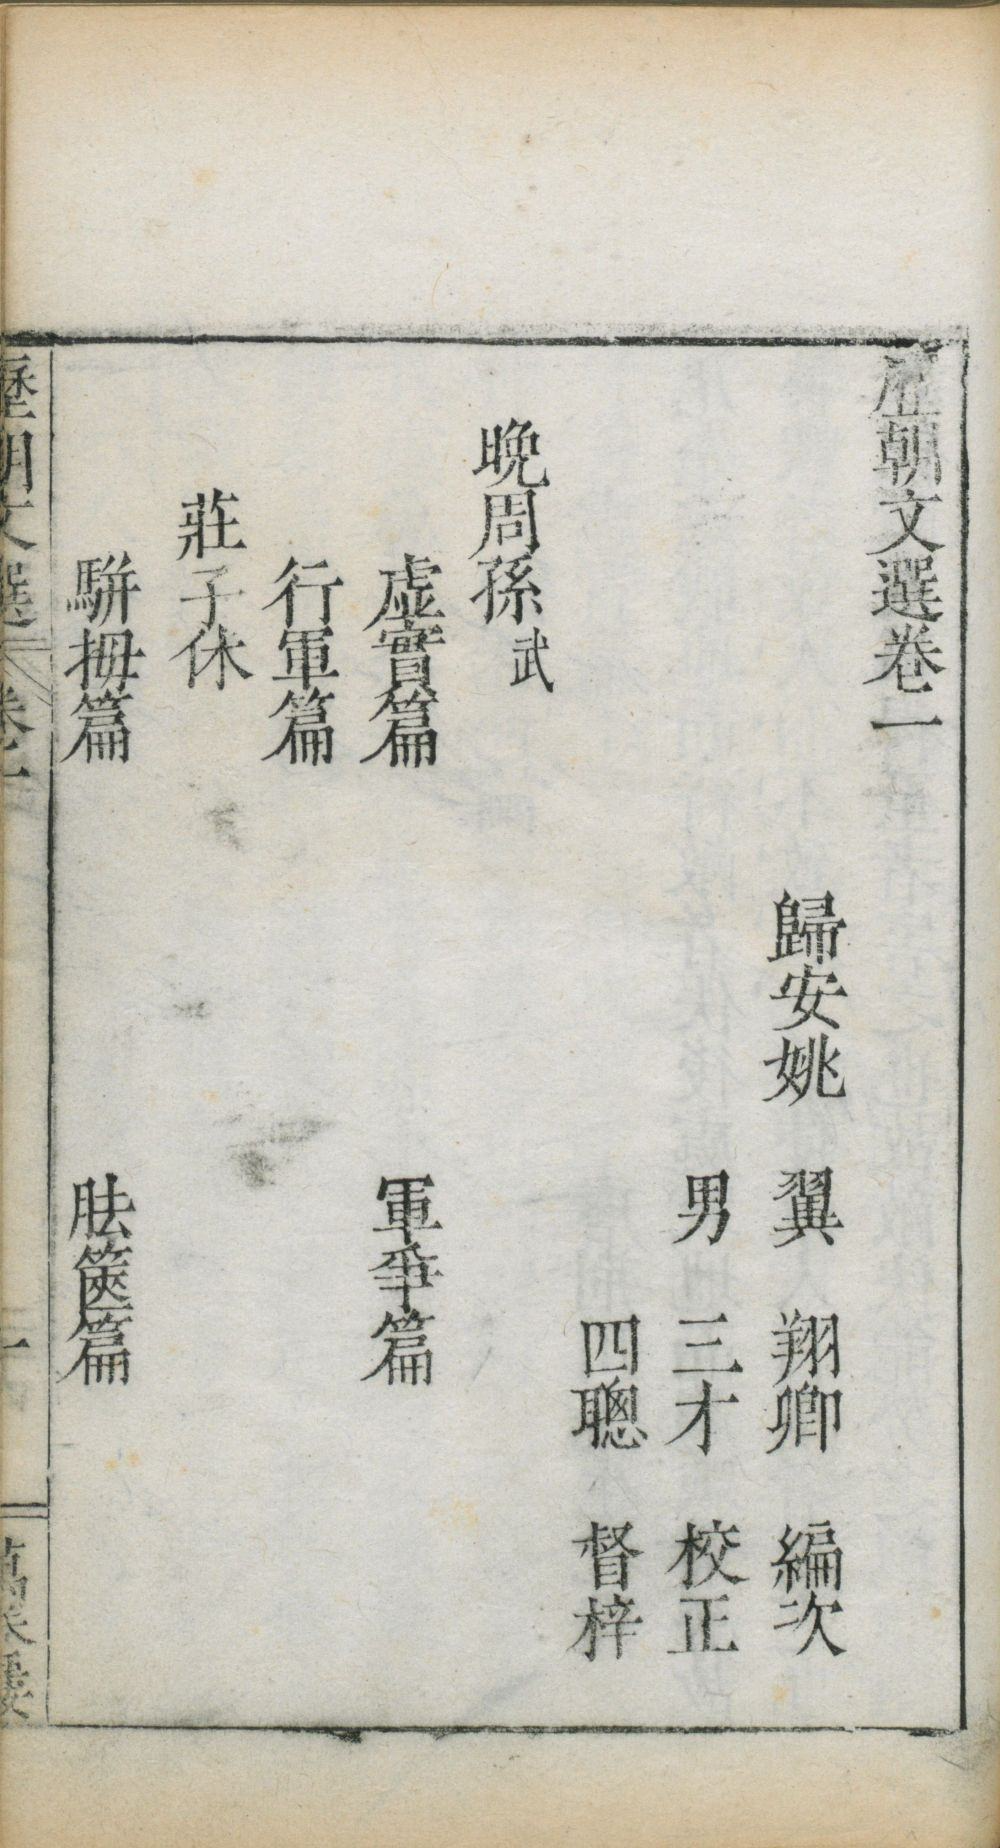 歷朝文選卷一
歸安姚　翼　翔卿　編次
男　三才　校正
四聰　督梓
晚周孫武
虛實篇　軍爭篇
行軍篇
莊子休
駢拇篇　胠篋篇
歷朝文選　卷一　一